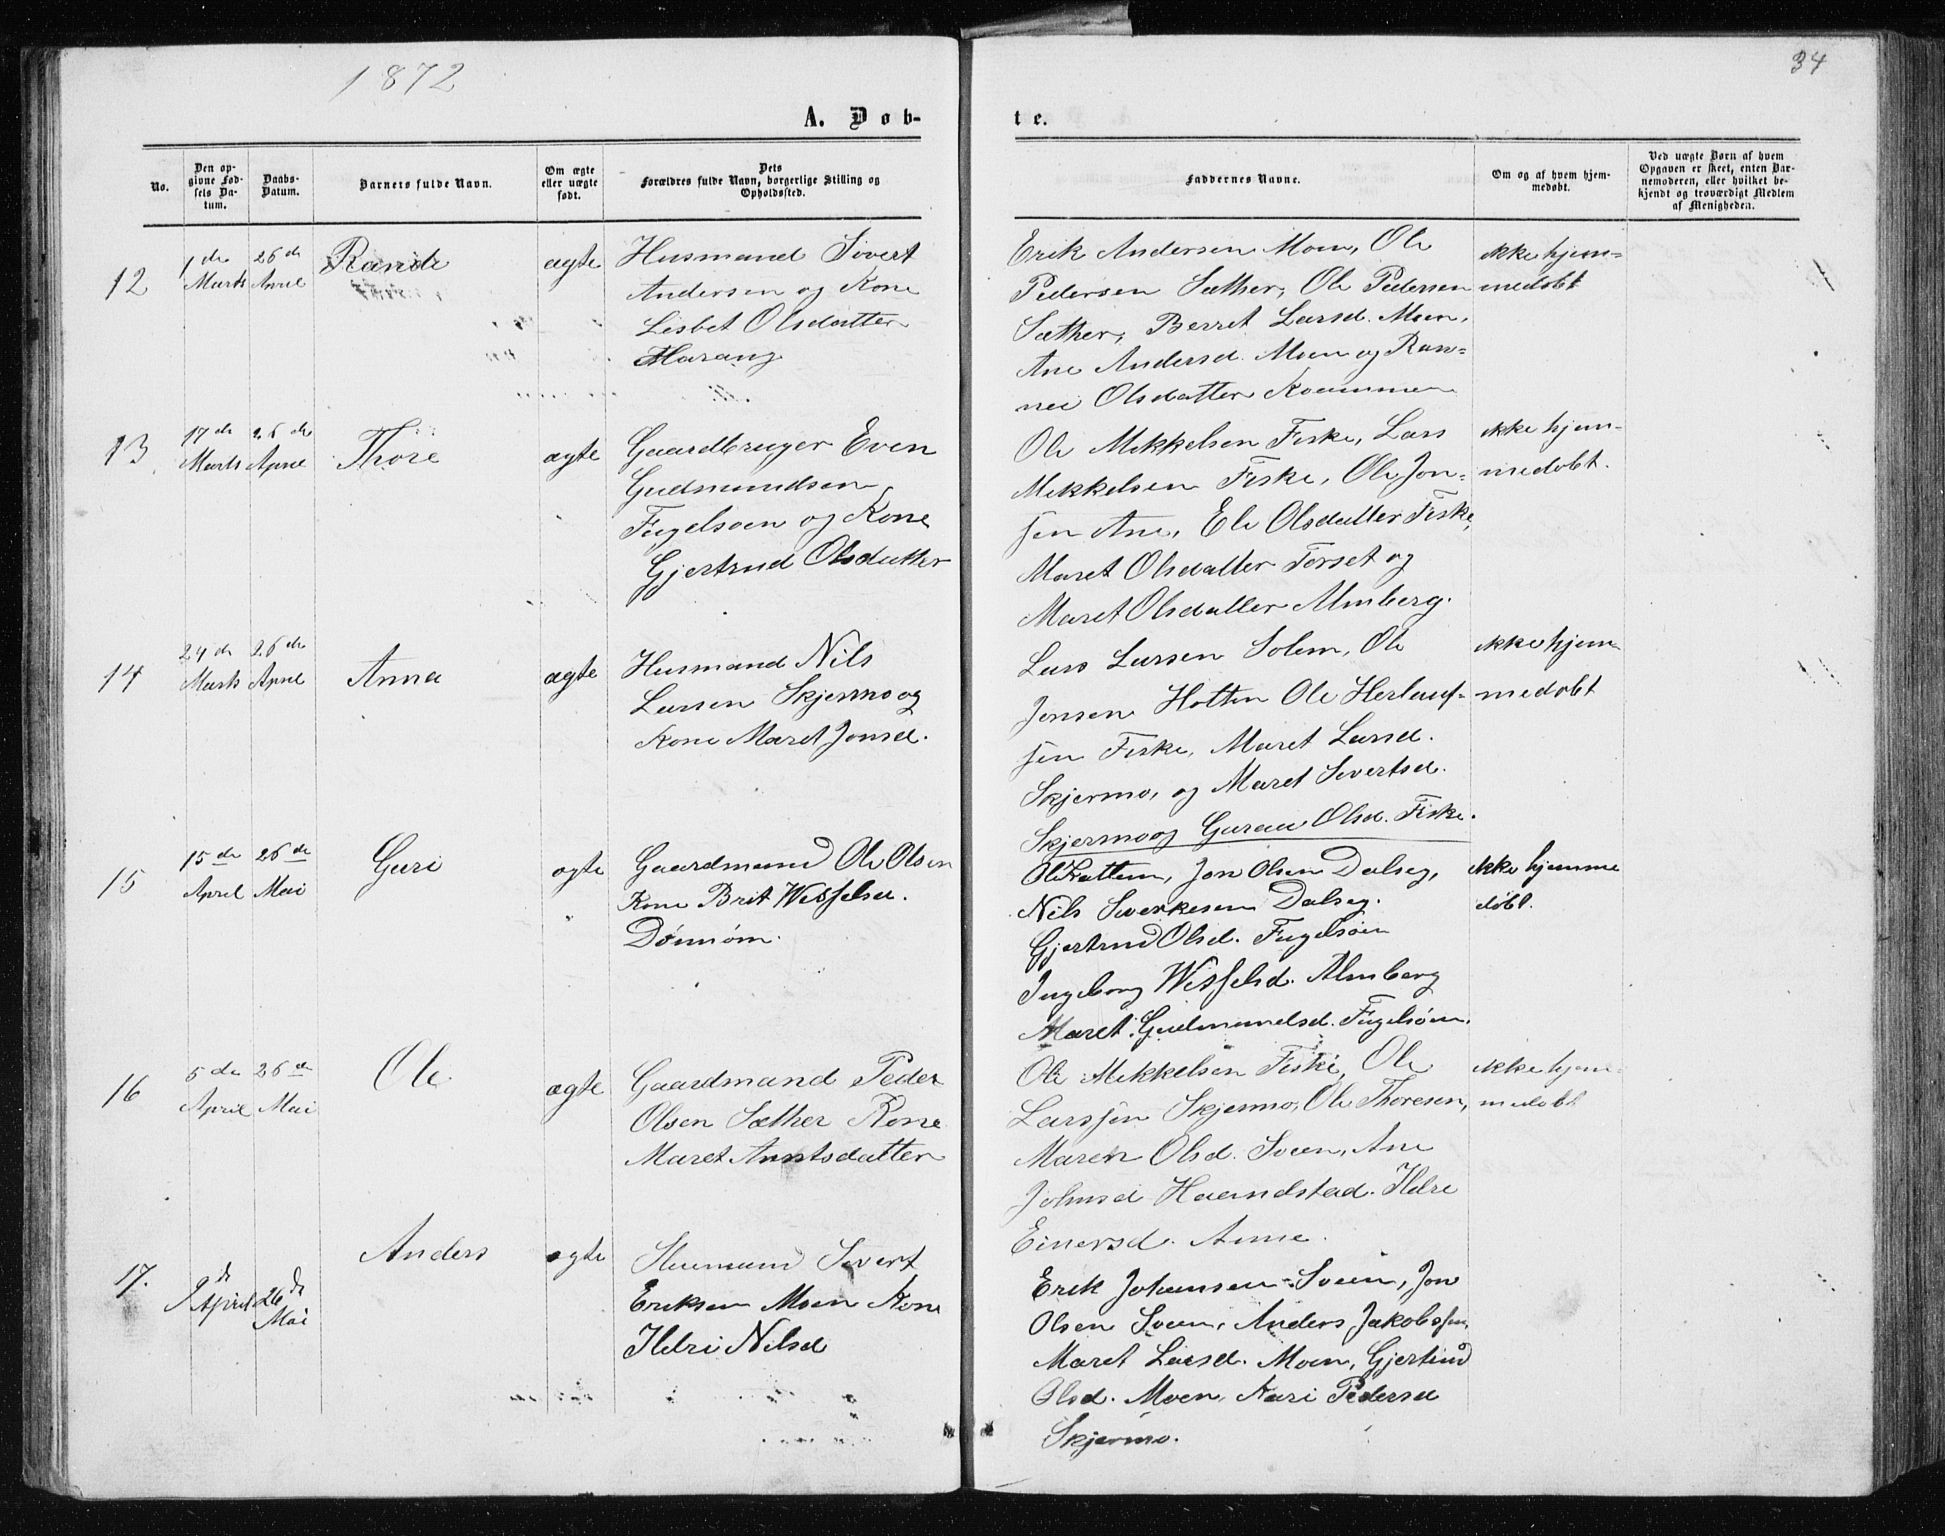 1872
34
A. Døb-
te.
No.
Den op-
givne Fød-
sels Da-
tum.
Daabs-
Datum.
Barnets fulde Navn.
Om ægte
eller uægte
født.
Dets
Forældres fulde Navn, borgerlige Stilling og
Opholdssted.
Faddernes Navne.
Om og af hvem hjem-
medøbt.
Ved uægte Børn af hvem
Opgaven er skeet, enten Bar-
nemoderen, eller hvilket be-
kjendt og troværdigt Medlem
af Menigheden.
12
1 de
Marts
26 de
April
Randi
ægte
Husmand Sivert
Andersen og Kone
Lisbet Olsdatter
Harang
Erik Andersen Moen, Ole
Pedersen Sæther, Ole Pedersen
Sæther, Berret Larsd. Moen,
Ane Andersd. Moen og Ran-
nei Olsdatter
ikke hjem-
medøbt
13
17 de
Marts
26 de
April
Thore
ægte
Gaardbruger Even
Gudmundsen
Fugelsøen og Kone
Gjertrud Olsdatter
Ole Mikkelsen Fiske, Lars
Mikkelsen Fiske, Ole Jon-
sen Ane, Eli Olsdatter Fiske,
Maret Olsdatter Forset og
Maret Olsdatter Almberg.
ikke hjem-
medøbt.
14
24 de
Marts
26 de
April
Anna
ægte
Husmand Nils
Larsen Skjermo og
Kone Maret Jonsd.
Lars Larsen Solem, Ole
Jonsen Holten Ole Herlauf-
sen Fiske, Maret Larsd.
Skjermo, og Maret Sivertsd.
Skjermo og Guran Olsd. Fiske.
ikke hjem-
medøbt
15
15 de
April
26 de
Mai
Guri
ægte
Gaardmand Ole Olsen
Kone Brit Wesselsd.
Dønnøm.
Ole Rattem, Jon Olsen Dalseg,
Nils Sverkesen Dalseg.
Gjertrud Olsd. Fugelsøen
Ingeborg Wesselsd. Almberg
Maret Gudmundsd. Fugelsøen.
ikke hjemme
døbt.
16
5 de
April
26 de
Mai
Ole
ægte
Gaardmand Peder
Olsen Sæther Kone
Maret Arntsdatter
Ole Mikkelsen Fiske, Ole
Larssen Skjermo, Ole Thoresen,
Maren Olsd. Sveen, Ane
Johnsd Haandstad. Ildri
Einersd. Anne.
ikke hjem-
medøbt
17.
9 d
April
26 d
Mai
Anders
ægte
Husmand Sivert
Eriksen Moen Kone
Ildri Nilsd
Erik Johansen Svein, Jon
Olsen Sveen, Anders Jakobssen,
Maret Larsd. Moen, Gjertrud
Olsd. Moen, Kari Pedersd
Skjermo.